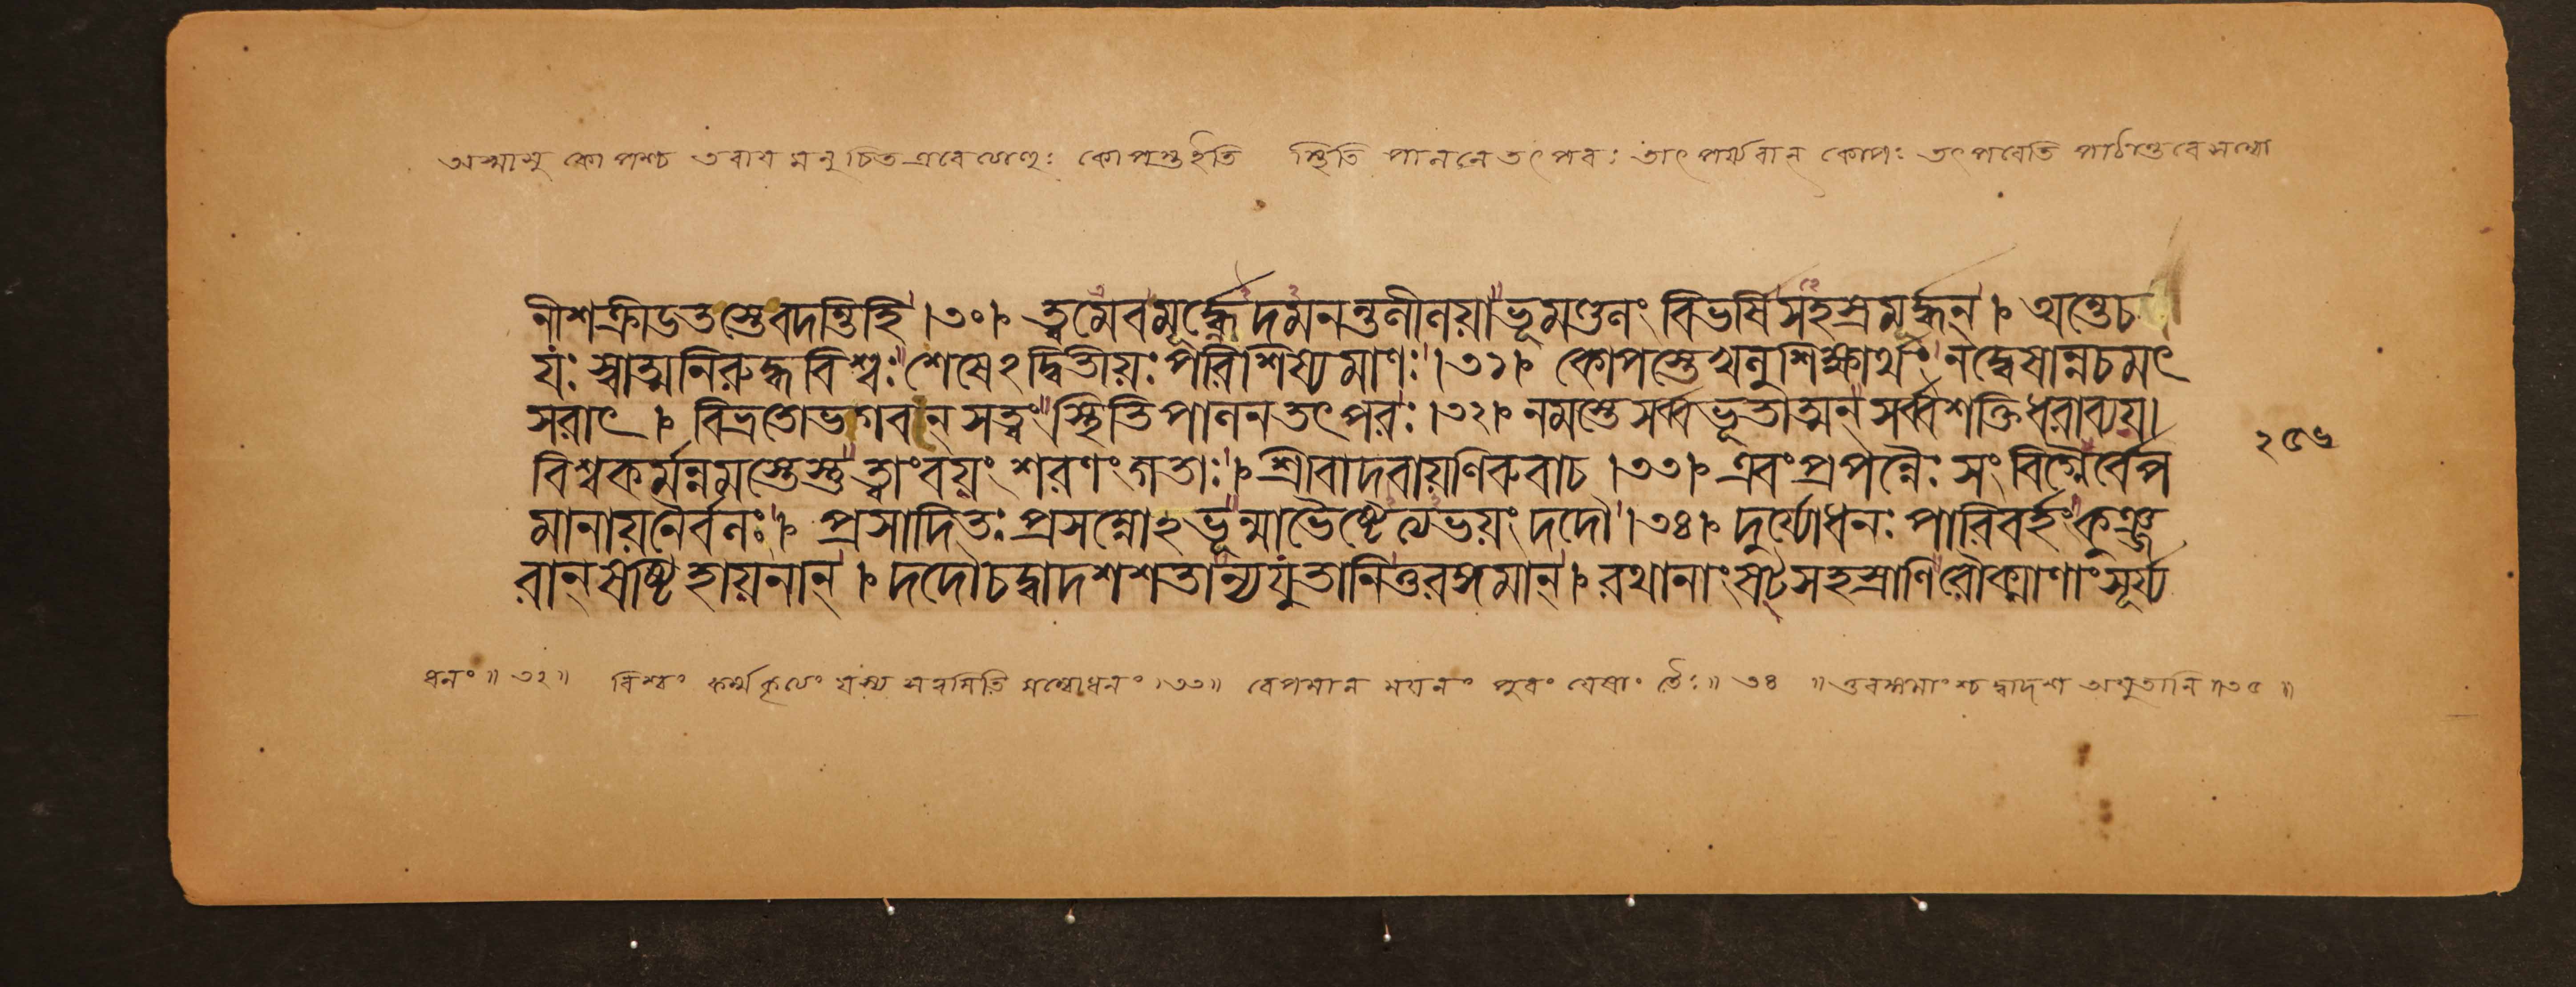 অস্মাসু কোপশ্চ তবায়মনুচিত এবেত্যাহুঃ কোপস্তইতি স্থিতিপালনে তৎপরঃ তাৎপর্য্যবান্ কোপঃ তৎপরেতি পাঠান্তরে সম্বো
লীশক্রীডতস্তেবদন্তিহি ।৩০। ত্বমেবমূর্দ্ধ্নেদমনন্তলীলয়া ভূমণ্ডলং বিভর্ষিসহস্রমূর্দ্ধন্ । অন্তেচ
যঃ স্বাত্মনিরুদ্ধবিশ্বঃ শেষেঽদ্বিতীয়ঃ পরিশিষ্যমাণঃ ।৩১। কোপস্তেখিলশিক্ষার্থং নদ্বেষান্নচমৎ
সরাৎ । বিভ্রতোভগবন্ সত্ত্বং স্থিতিপালনতৎপরঃ ।৩২। নমস্তেসর্ব্বভূতাত্মন্ সর্ব্বশক্তিধরাব্যয়।
বিশ্বকর্ম্মন্নমস্তেস্তু ত্বাংবয়ং শরণংগতাঃ । শ্রীবাদরায়ণিরুবাচ ।৩৩। এবংপ্রপন্নৈঃ সংবিগ্নৈর্বেপ
২৫৬
মানায়নৈর্বলঃ । প্রসাদিতঃ প্রসন্নোঽভূন্মাভৈষ্টেত্যভয়ং দদৌ ।৩৪। দুর্য্যোধনঃ পারিবর্হং কুঞ্জ
রান্ ষষ্টিহায়নান্ । দদৌচদ্বাদশশতান্যযুতানিতুরঙ্গমান্ । রথানাং ষট্সহস্রাণি রৌক্মাণাং সূর্য্য
ধনং ॥ ৩২ ॥ বিশ্বং কর্ম্ম কৃত্যং যস্য সত্বমিতি সম্বোধনং ।৩৩॥ বেপমানময়নং পুরং যেষাং তৈঃ ॥ ৩৪ ॥ তুরঙ্গমাংশ্চ দ্বাদশ অযুতানি ॥৩৫॥